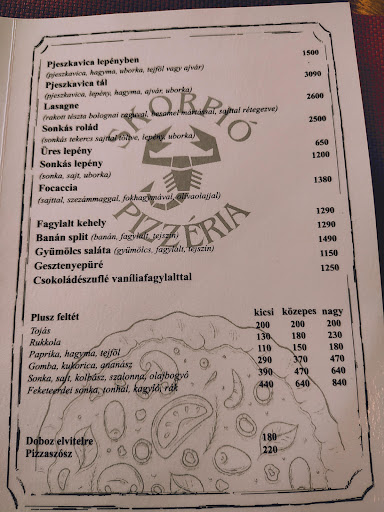 Pjeszkavica lepényben 1500
(pjeszkavica, hagyma, uborka, tejföl vagy ajvár)
Pjeszkavica tál 3090
(pjeszkavica, lepény, hagyma, ajvár, uborka)
Lasagne 2600
(rakott tészta bolognai raguval, besamel mártással, sajttal rétegezve)
Sonkás rolád 2500
(sonkás tekercs sajttal töltve, lepény, uborka)
Üres lepény 650
Sonkás lepény 1200
(sonka, sajt, uborka)
Focaccia 1380
(sajttal, szezámmaggal, fokhagymával, olívaolajjal)
SKORPIÓ
PIZZÉRIA
1290
Fagylalt kehely 1290
Banán split (banán, fagylalt, tejszín) 1490
Gyümölcs saláta (gyümölcs, fagylalt, tejszín) 1150
Gesztenyepüré 1250
Csokoládészuflé vaníliafagylalttal
Plusz feltét kicsi közepes nagy
Tojás 200 200 200
Rukkola 130 180 230
Paprika, hagyma, tejföl 110 150 180
Gomba, kukorica, ananász 290 370 470
Sonka, sajt, kolbász, szalonna, olajbogyó 390 470 640
Feketeerdei sonka, tonhal, kagyló, rák 440 640 840
Doboz elvitelre 180
Pizzaszósz 220